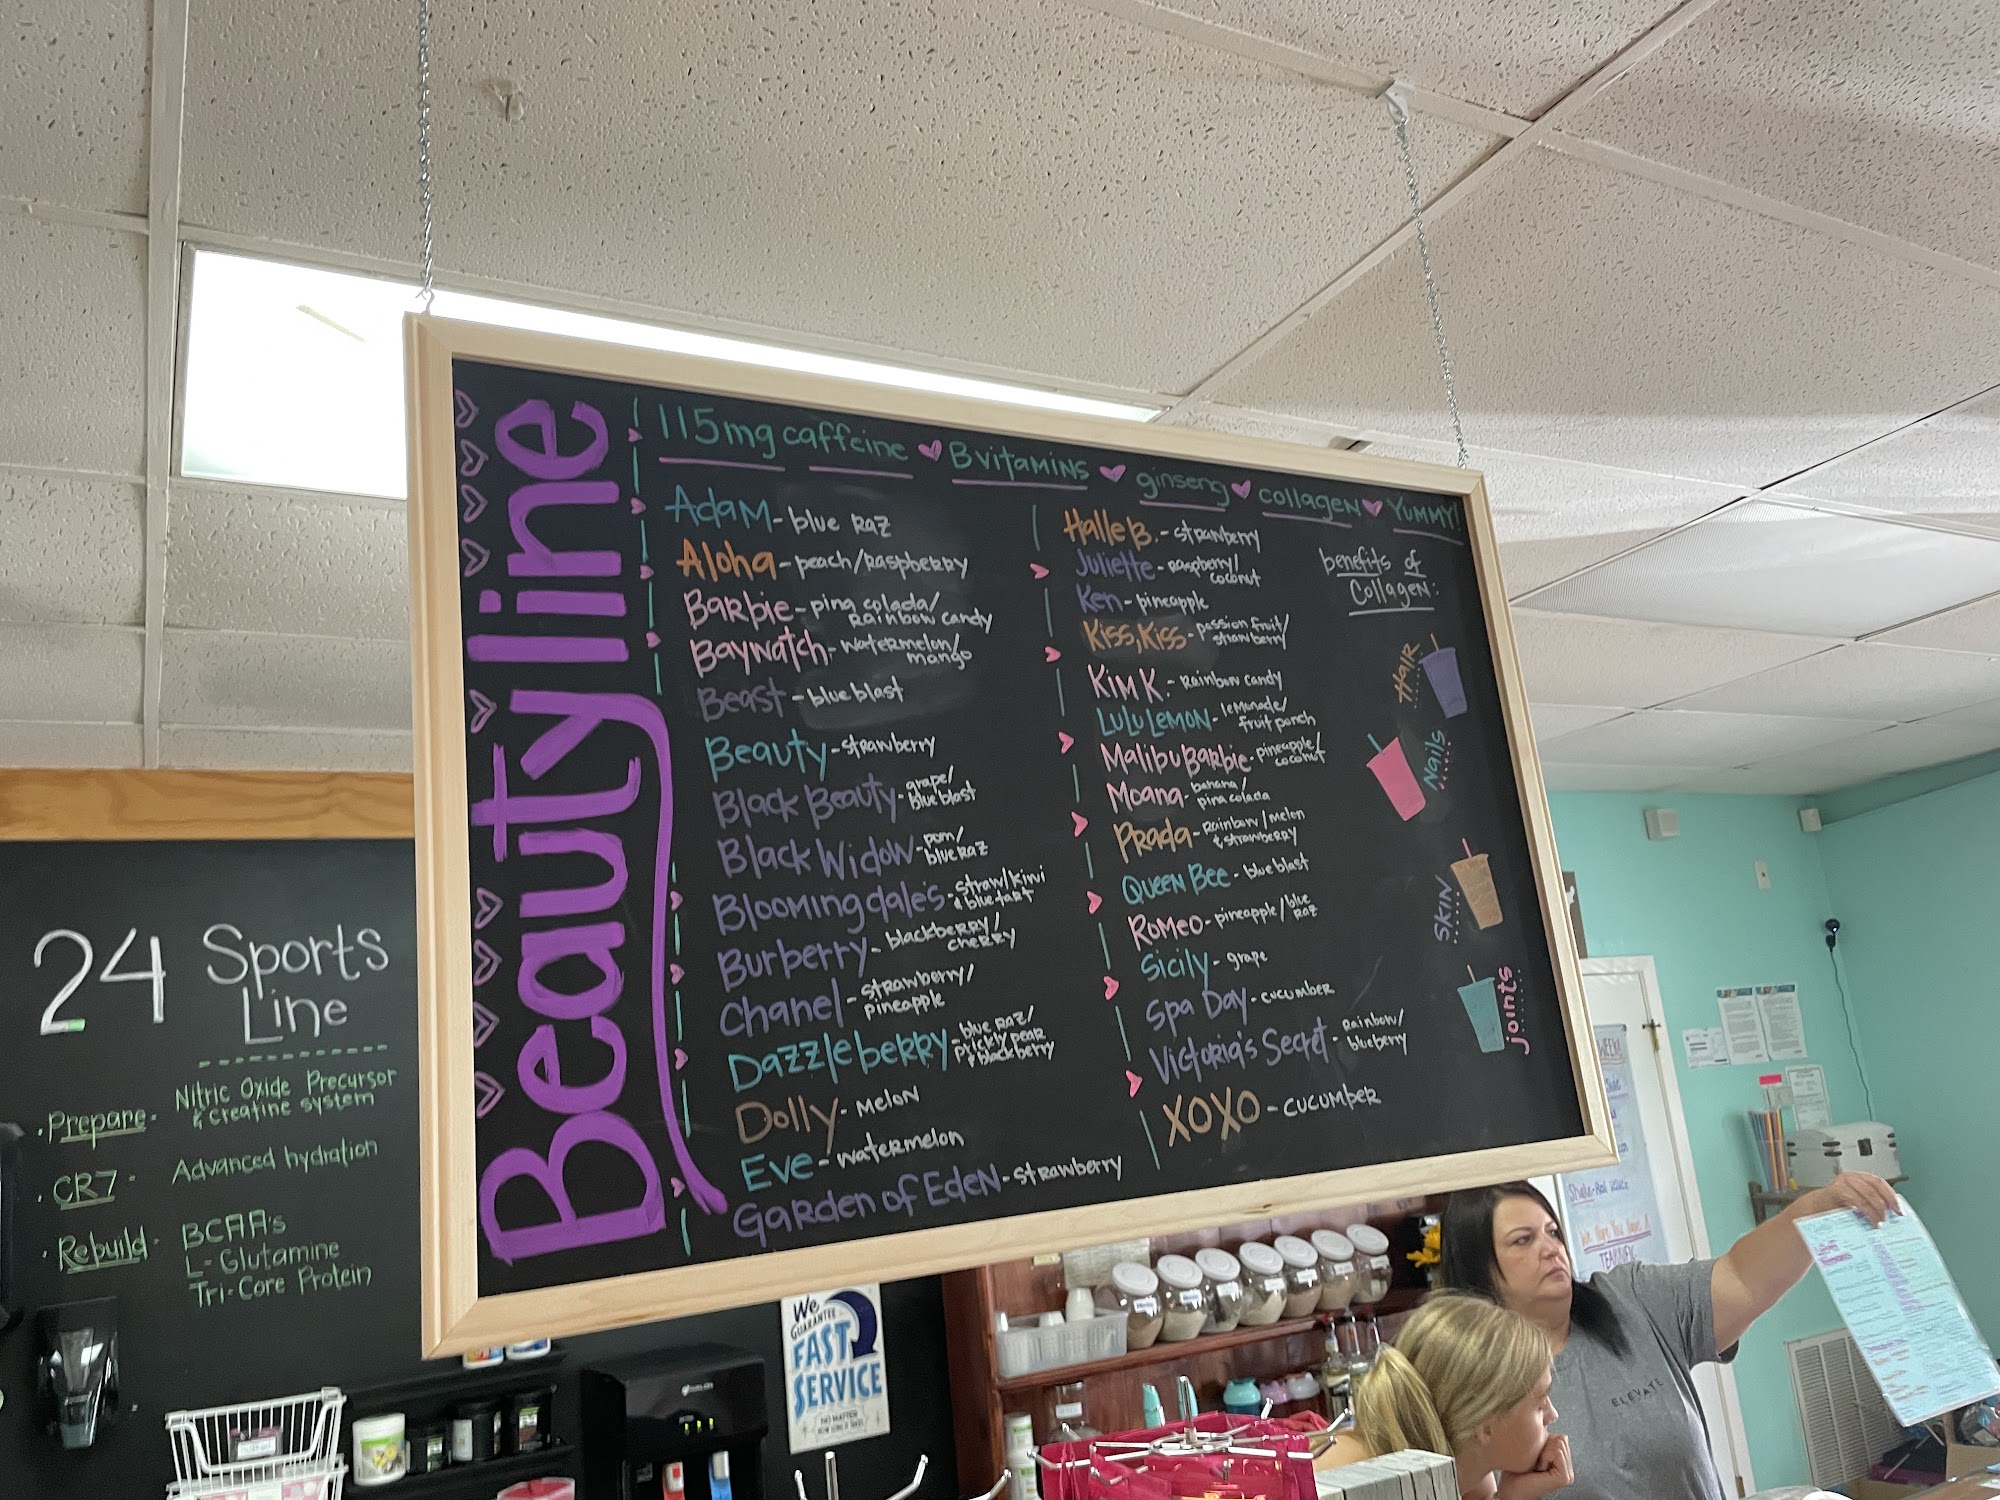 Beautyline
115mg caffeine B vitamins ginseng collagen YUMMY!
Adam - blue raz
Aloha - peach/raspberry
Barbie - pina colada/
rainbow candy
Baywatch - watermelon/
mango
Beast - blue blast
Beauty - strawberry
Black Beauty - grape/
blue blast
Black Widow - pom/
blue raz
Bloomingdale's - straw/kiwi
& blue tart
Burberry - blackberry/
cherry
Chanel - strawberry/
pineapple
Dazzleberry - blue raz/
prickly pear
& blackberry
Dolly - melon
Eve - watermelon
Garden of Eden - strawberry
Halle B. - strawberry
Juliette - raspberry/
coconut
Ken - pineapple
Kiss, Kiss - passion fruit/
strawberry
Kim K. - rainbow candy
LuLu Lemon - lemonade/
fruit punch
Malibu Barbie - pineapple/
coconut
Moana - banana/
pina colada
Prada - rainbow/melon
& strawberry
Queen Bee - blue blast
Romeo - pineapple/blue
raz
Sicily - grape
Spa Day - cucumber
Victoria's Secret - rainbow/
blueberry
XOXO - cucumber
benefits of
Collagen:
Hair
Nails
Skin
joints
24 Sports
Line
Prepare - Nitric Oxide Precursor
& Creatine system
CR7 - Advanced hydration
Rebuild - BCAA's
L-Glutamine
Tri-Core Protein
We
GUARANTEE
FAST
SERVICE
NO MATTER
HOW LONG IT TAKES
ELEVATE